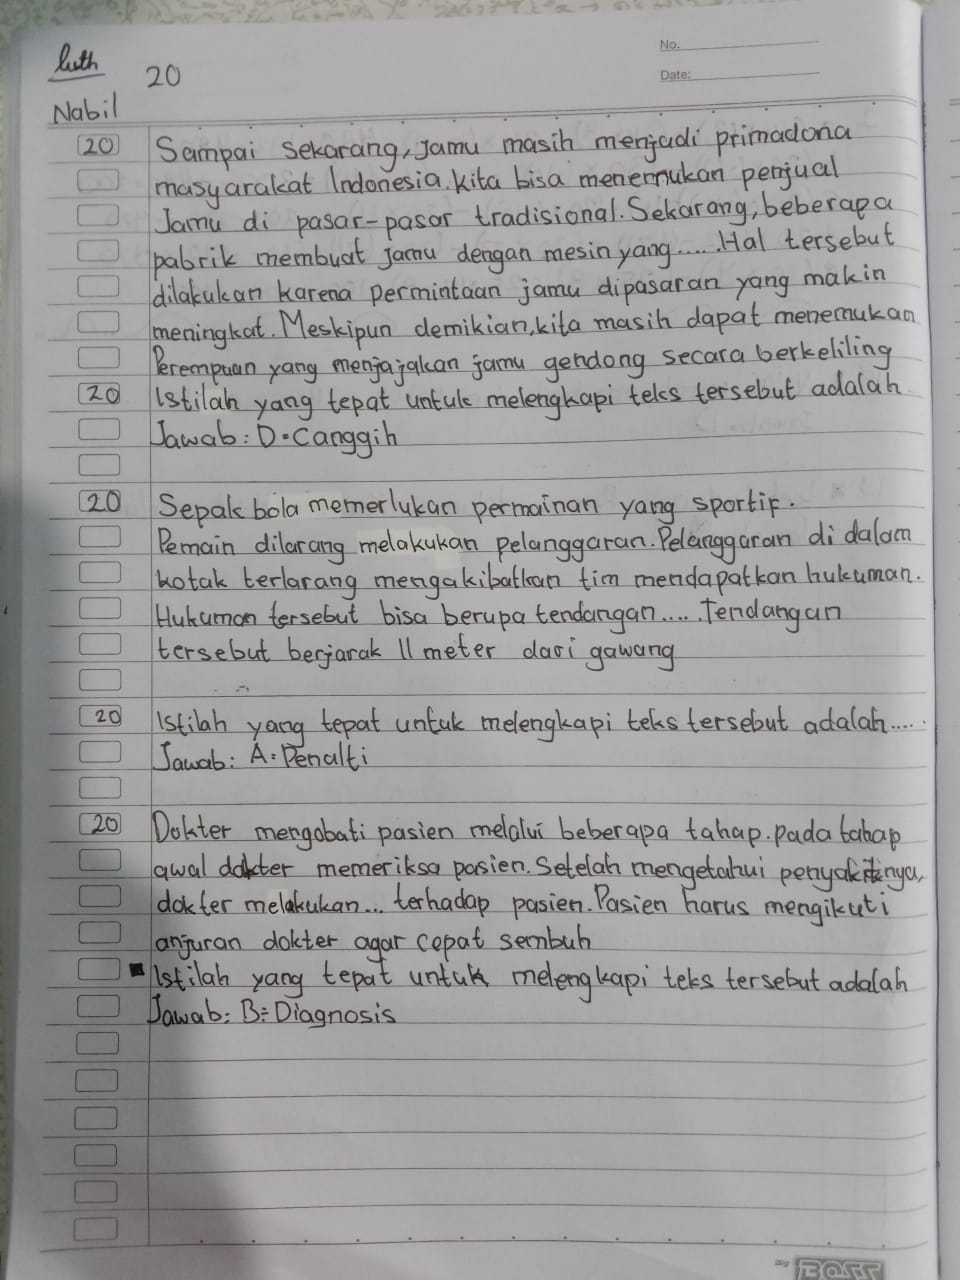 luth
20
No.
Date:
Nabil
20 Sampai sekarang, Jamu masih menjadi primadona
masyarakat Indonesia. kita bisa menemukan penjual
Jamu di pasar-pasar tradisional. Sekarang, beberapa
pabrik membuat jamu dengan mesin yang..... Hal tersebut
dilakukan karena permintaan jamu dipasaran yang makin
meningkat. Meskipun demikian, kita masih dapat menemukan
Perempuan yang menjajakan jamu gendong secara berkeliling
20 Istilah yang tepat untuk melengkapi teks tersebut adalah
Jawab: D = Canggih
20 Sepak bola memerlukan permainan yang sportif.
Pemain dilarang melakukan pelanggaran. Pelanggaran di dalam
kotak terlarang mengakibatkan tim mendapatkan hukuman.
Hukuman tersebut bisa berupa tendangan..... Tendangan
tersebut berjarak 11 meter dari gawang
20 Istilah yang tepat untuk melengkapi teks tersebut adalah....
Jawab: A = Penalti
20 Dokter mengobati pasien melalui beberapa tahap. pada tahap
awal dokter memeriksa pasien. Setelah mengetahui penyakitnya,
dokter melakukan... terhadap pasien. Pasien harus mengikuti
anjuran dokter agar cepat sembuh
Istilah yang tepat untuk melengkapi teks tersebut adalah
Jawab: B = Diagnosis
Big BOSS